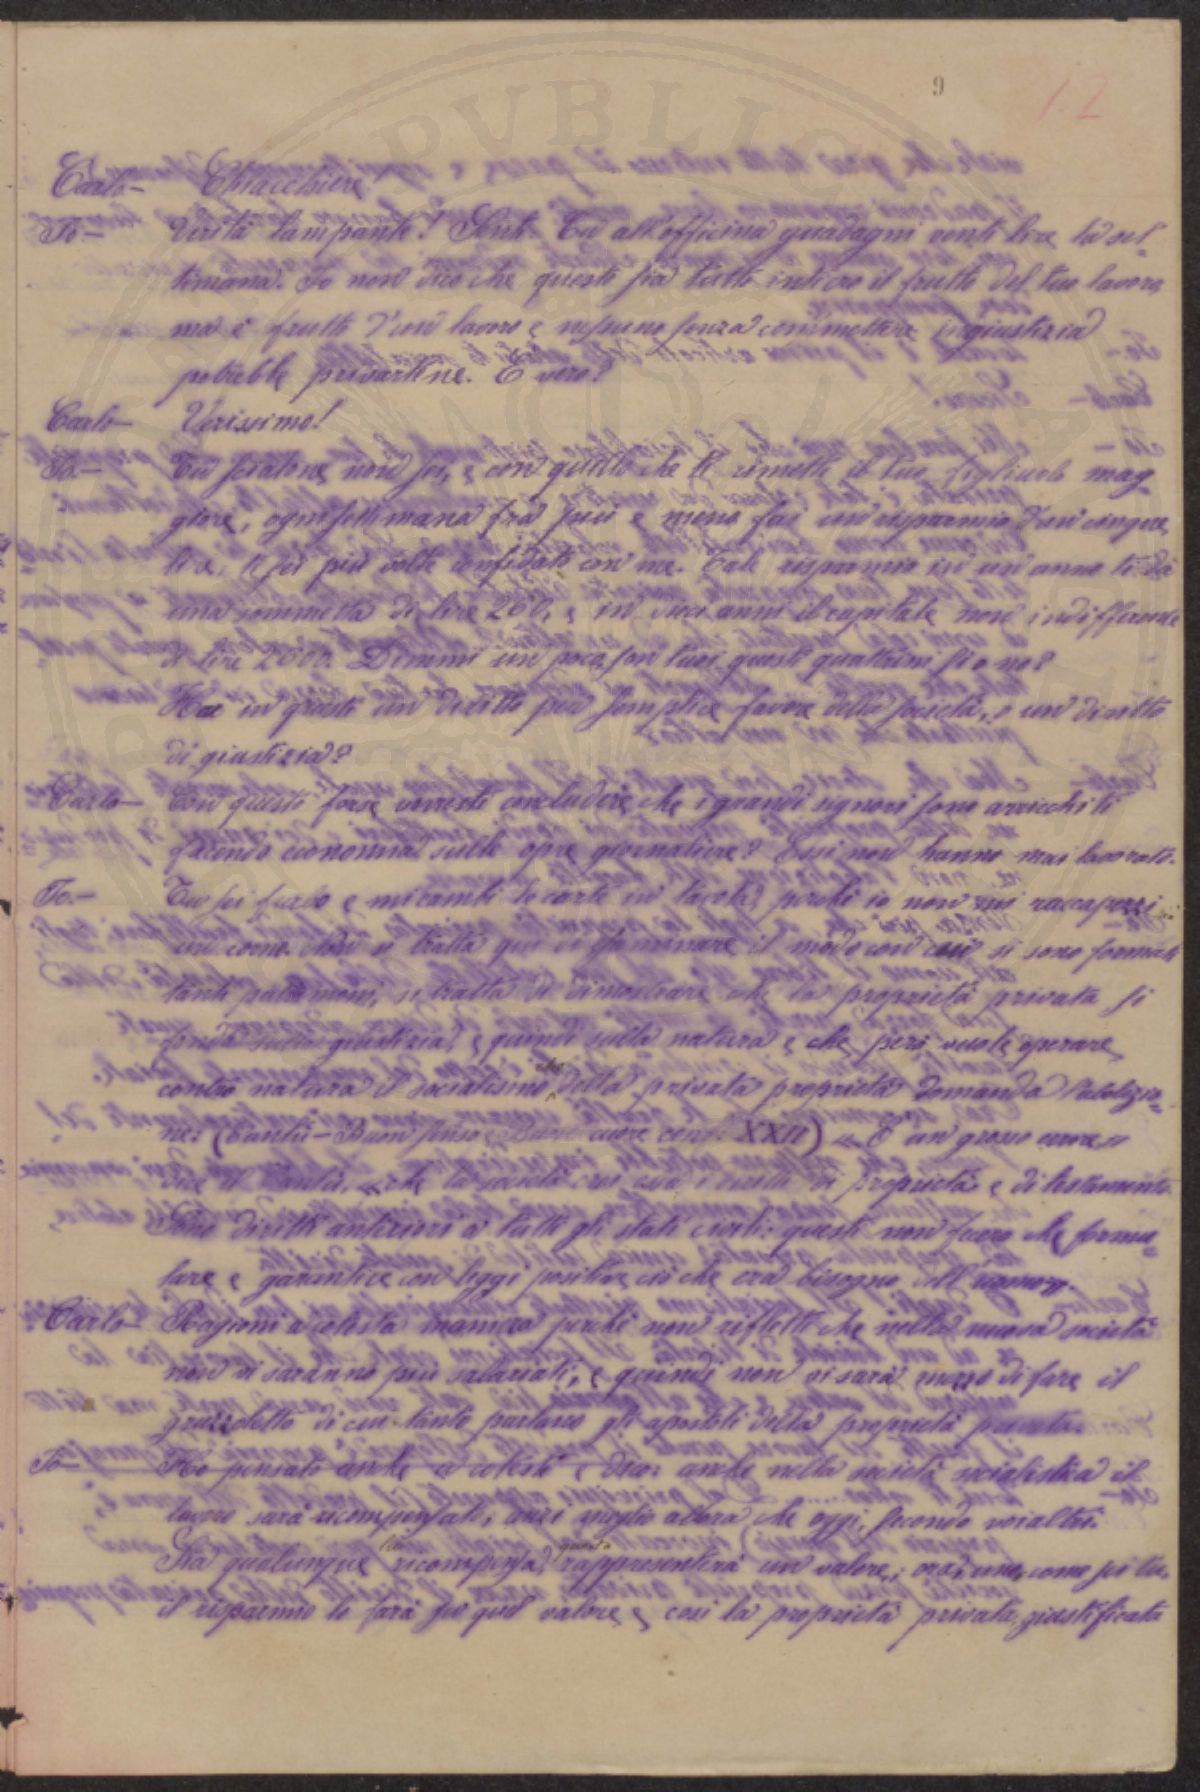 9
12
Carlo — Chiacchiere
Io — Verità lampante! Senti. Tu all'officina guadagni venti lire la set-
timana. Io non dico che questo sia tutto intiero il frutto del tuo lavoro,
ma è frutto d'un lavoro e nessuno senza commettere ingiustizia
potrebbe privartene. È vero?
Carlo — Verissimo!
Io — Tu sei, e con quello che ti rimette il tuo figliuolo mag-
giore, ogni settimana fra su e meno fai un risparmio d'un cinque
lire, ti sei più volte confidato con me. Tale risparmio in un anno ti dà
una sommetta di lire 260, e in dieci anni il capitale non indifferente
di lire 2600. Dimmi un poco, son tuoi questi quattrini, sì o no?
Hai in questi un diritto per semplice favore della società, o un diritto
di giustizia?
Carlo — Con questo forse vorresti concludere che i grandi signori sono arricchiti
facendo economia sulle opre giornaliere? Essi non hanno mai lavorato.
Io. — Tu sei furbo e mi cambi le carte in tavola, perché io non mi raccapezzi
come. Non si tratta qui di esaminare il modo con cui si sono formati
tanti patrimoni, si tratta di dimostrare che la proprietà privata si
fonda sulla giustizia, e quindi sulla natura e che però vuole operare
contro natura il socialismo che della privata proprietà domanda l'abolizio-
ne. (Cantù — Buon senso e Buon cuore conf. XXII) « È un grosso errore »
dice il Cantù, « che la società crei essa i diritti di proprietà e di testamento.
Sono diritti anteriori a tutti gli stati civili: questi non fecero che formu-
lare e garantire con leggi positive ciò che era bisogno dell'uomo ».
Carlo — Ragioni a cotesta maniera perché non rifletti che nella nuova società
non vi saranno più salariati, e quindi non vi sarà mezzo di fare il
gruzzoletto di cui tanto parlano gli apostoli della proprietà privata.
Io — Ho pensato anche a cotesto e dico: anche nella società socialistica il
lavoro sarà ricompensato, anzi meglio allora che oggi, secondo voialtri.
Sia qualunque la ricompensa, questa rappresenterà un valore; ora, uno, come sei tu,
il risparmio lo farà su quel valore, e così la proprietà privata, giustificata